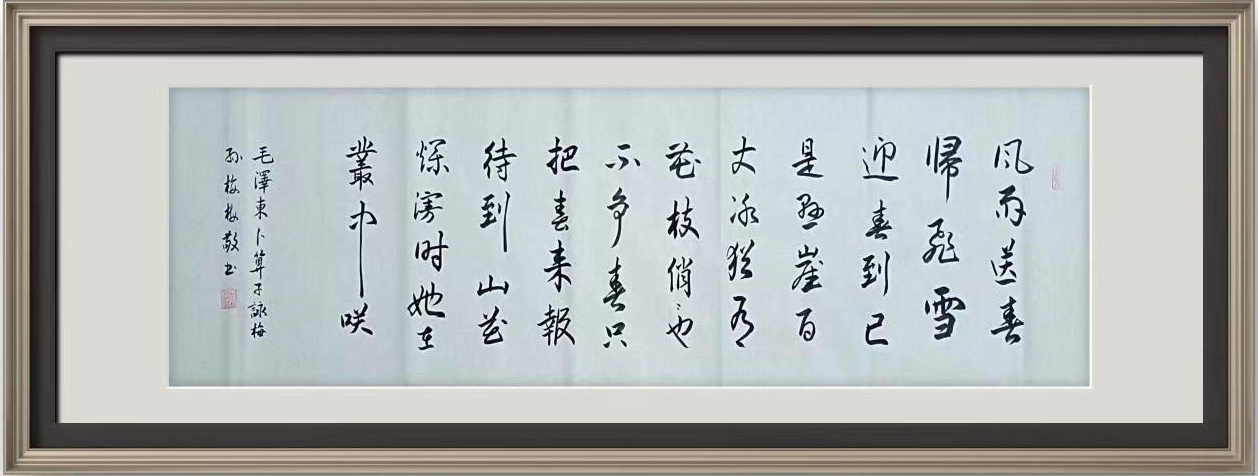 风雨送春
帰飛雪
迎春到已
是懸崖百
丈冰猶有
花枝俏々也
不争春只
把春来報
待到山花
爛漫时她在
叢中咲
毛澤東卜算子詠梅
孙梅梅敬书